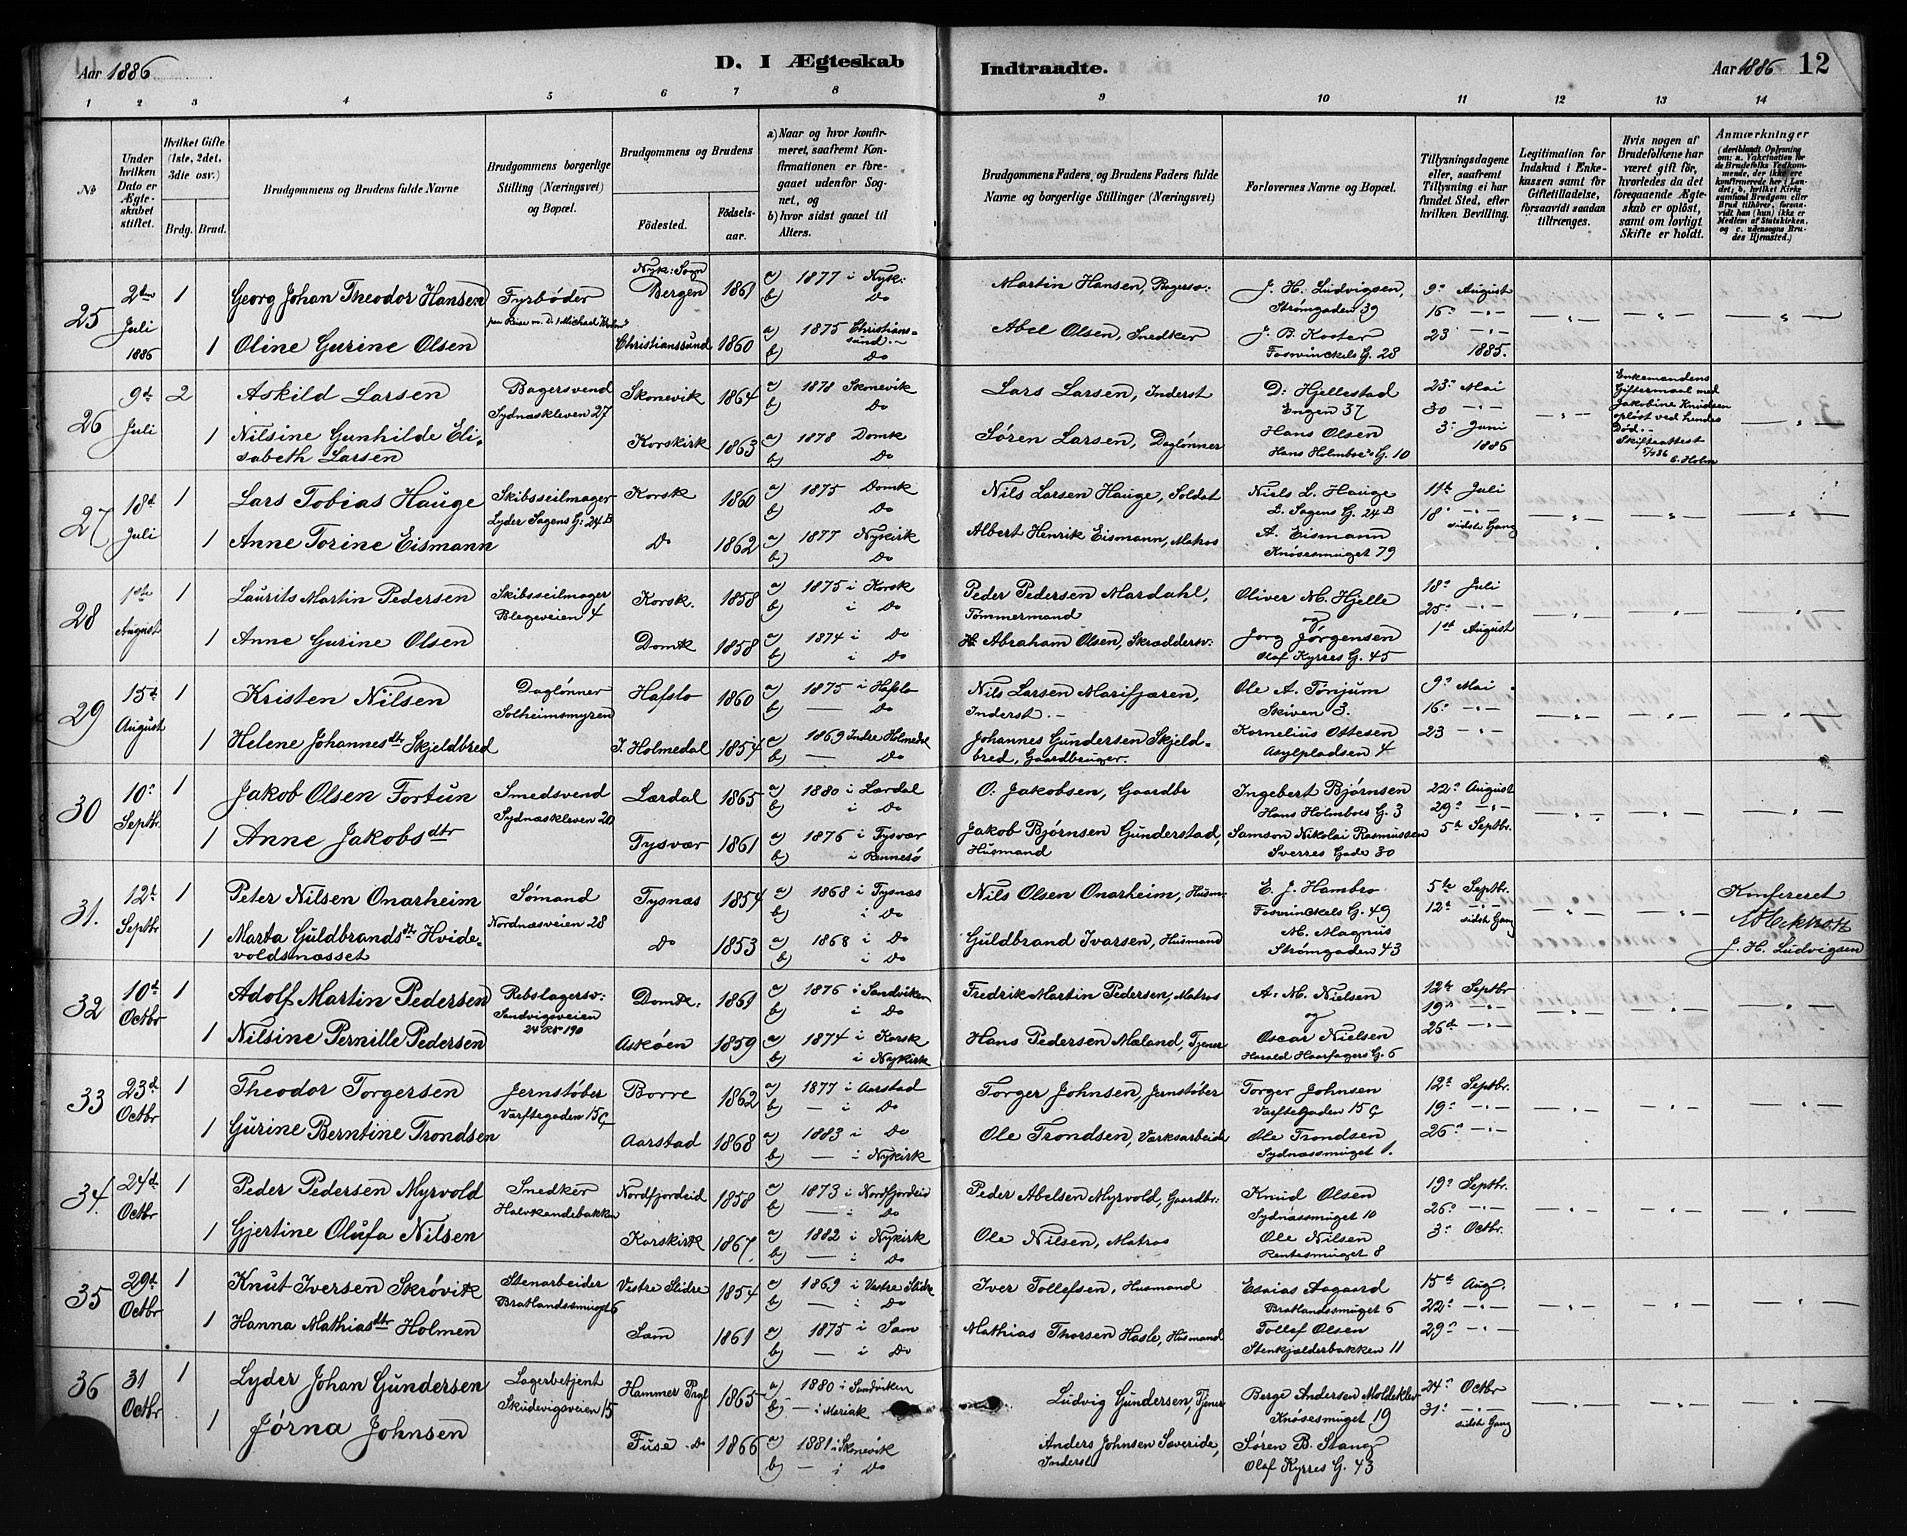 Aar 1886
D. I Ægteskab
Indtraadte.
Aar 1886 12
1 2 3 4 5 6 7 8 9 10 11 12 13 14
No
Under hvilken Dato er Ægteskabet stiftet.
Hvilket Gifte (1ste, 2det, 3die osv.)
Brdg. Brud.
Brudgommens og Brudens fulde Navne
Brudgommens borgerlige Stilling (Næringsvei) og Bopæl.
Brudgommens og Brudens
Fødested. Fødselsaar.
a) Naar og hvor konfirmeret, saafremt Konfirmationen er foregaaet udenfor Sognet, og
b) hvor sidst gaaet til Alters.
Brudgommens Faders og Brudens Faders fulde Navne og borgerlige Stillinger (Næringsvei)
Forlovernes Navne og Bopæl.
Tillysningsdagene eller, saafremt Tillysning ei har fundet Sted, efter hvilken Bevilling.
Legitimation for Indskud i Enkekassen samt for Giftetilladelse, forsaavidt saadan tiltrænges.
Hvis nogen af Brudefolkene har været gift før, hvorledes da det foregaaende Ægteskab er opløst, samt om lovligt Skifte er holdt.
Anmærkninger
25 2den Juli 1886
1 Georg Johan Theodor Hansen Fyrbøder Nyk: Sogn Bergen 1861 a) 1877 i Nyk: b) Do Martin Hansen, Bagersv: J. H. Ludvigsen, Strømgaden 39 9n August 16n
1 Oline Gurine Olsen Christianssund 1860 a) 1875 Christianssund b) Do Abel Olsen, Snedker J. B. Koster Fosvinckels G. 28 23 1885.
26 9d Juli
2 Askild Larsen Bagersvend Sydnæskleven 27 Skonevik 1864 a) 1878 Skonevik b) Do Lars Larsen, Inderst D: Hjellestad Engen 37 23n Mai 30
Enkemandens Giftermaal med Jakobine Knudsen opløst ved hendes Død. Skifteattest 5/7 86 C. Holm
1 Nilsine Gunhilde Elisabeth Larsen Korskirk 1863 a) 1878 Domk b) Do Søren Larsen, Daglønner Hans Olsen Hans Holmboe's G. 10 3n Juni 1886
27 18d Juli
1 Lars Tobias Hauge Skibsseilmager Lyder Sagens G: 24 B Korsk 1860 a) 1875 Domk b) Do Nils Larsen Hauge, Soldat Niels L. Hauge L. Sagens G. 24 B 11te Juli 18n sidste Gang
1 Anne Torine Eismann Do 1862 a) 1877 Nykirk b) Do Albert Henrik Eismann, Matros A. Eismann Knøsesmuget 79
28 1ste August
1 Laurits Martin Pedersen Skibsseilmager Blegeveien 4 Korsk. 1858 a) 1875 i Korsk b) i Do Peder Pedersen Mardahl, Tømmermand Oliver M. Hjelle og 18n Juli 25n
1 Anne Gurine Olsen Domk 1858 a) 1874 i Do b) i Do Abraham Olsen, Skræddersv: Jørg Jørgensen Olaf Kyrres G. 45 1st August
29 15d August
1 Kristen Nilsen Daglønner Solheimsmyren Hafslo 1860 a) 1875 i Hafslo b) — Do Nils Larsen Marifjæren, Inderst. Ole A. Tønjum Skiven 3. 9n Mai 16n
1 Helene Johannesdtr Skjeldbred I. Holmedal 1854 a) 1869 Indre Holmedal b) — Do Johannes Gundersen Skjeldbred, Gaardbruger. Kornelius Ottesen Asylpladsen 4 23
30 10n Septbr.
1 Jakob Olsen Fortun Smedsvend Sydnæskleven 20 Lærdal 1865 a) 1880 i Lærdal b) i Do O. Jakobsen, Gaardbr Ingebert Bjørnsen Hans Holmboes G. 3 22n August 29n
1 Anne Jakobsdtr Tysvær 1861 a) 1876 i Tysvær b) i Rennesø Jakob Bjørnsen Gunderstad, Husmand Samson Nikolai Rasmussen Sverres Gade 30 5te Septbr.
31. 12te Septbr
1 Peter Nilsen Onarheim Sømand Nordnæsveien 28 Tysnæs 1854 a) 1868 i Tysnæs b) i Do Nils Olsen Onarheim, Husm. E. J. Hambro Fosvinckels G. 49 5te Septbr. 12te sidste Gang Konfereret
1 Marta Guldbrandsdtr Hvidevoldsnæsset Do 1853 a) 1868 i Do b) i Do Guldbrand Ivarsen, Husmand M. Magnus Strømgaden 43 J. H. Ludvigsen
32 10d Octbr
1 Adolf Martin Pedersen Rebslagersv: Sandvigsveien Domk: 1861 a) 1876 i Sandviken b) i Do Fredrik Martin Pedersen, Matros A. M. Nielsen og 12te Septbr 19n
1 Nilsine Pernille Pedersen Askøen 1859 a) 1874 i Korsk b) i Nykirk Hans Pedersen Mæland, Tjener Oscar Nielsen Harald Haarfagers G. 6 26d
33 23d Octbr
1 Theodor Torgersen Jernstøber Værftsgaden 15 Ç Borre 1862 a) 1877 i Aarstad b) — i Do Torger Johnsen, Jernstøber Torger Johnsen Værftsgaden 15 Ç 12te Septbr. 19n
1 Gurine Berntine Trondsen Aarstad 1868 a) 1883 i Do b) — i Nykirk Ole Trondsen, Værksarbeide Ole Trondsen Sydnæssmuget 1. 26n
34 24d Octbr
1 Peder Pedersen Myrvold Snedker Halvkandebakken Nordfjordeid 1858 a) 1873 i Nordfjordeid b) — Do Peder Abelsen Myrvold, Gaardbr: Knud Olsen Sydnæssmuget 10 19n Septbr. 26n
1 Gjertine Olufa Nilsen Korskirk 1867. a) 1882 i Nykirk b) — i Do Ole Nilsen, Matros Ole Nilsen Rentesmuget 8 3n Octbr.
35 29d Octbr
1 Knut Iversen Skrøvik Stenarbeider Bratlandssmuget 6 Vestre Slidre 1854 a) 1869 i Vestre Slidre b) — i Do Iver Tollefsen, Husmand Esaias Aagaard Bratlandssmuget 6 15d Aug. 22n
1 Hanna Mathiasdtr Holmen Sam 1861 a) 1875 i Sam b) — i Do Mathias Thorsen Hasle, Husmand Tollef Olsen Stenkjælderbakken 11 29n
36 31 Octbr
1 Lyder Johan Gundersen Lagerbetjent Skudevigsveien 15 Hammer Prgl 1865 a) 1880 i Sandviken b) — i Mariak Ludvig Gundersen, Tjener Berge Andersen Moldeklev Knøsesmuget 19 24n Octbr 31n sidste Gang
1 Jørna Johnsen Fuse Do 1866 a) 1881 i Skonevik b) — i Do Anders Johnsen Sæveride, Inderst Søren B. Stang Olaf Kyrres G. 43